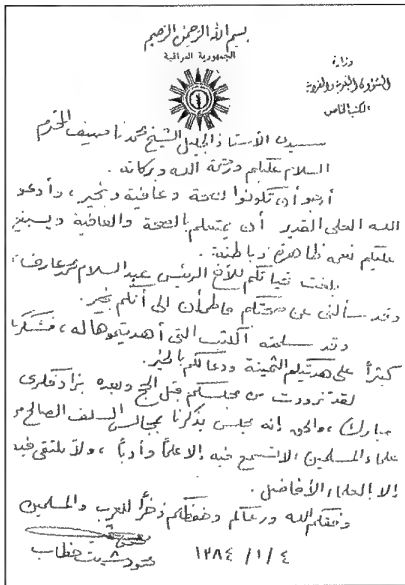 بسم الله الرحمن الرحيم
الجمهورية العراقية
وزارة
الشؤون البلدية والقروية
المكتب الخاص
سيدي الأستاذ الجليل الشيخ محمد نصيف المحترم
السلام عليكم ورحمة الله وبركاته.
أرجو أن تكونوا بصحة وعافية وبخير، وأدعو
الله العلي القدير أن يمتعكم بالصحة والعافية ويسبغ
عليكم نعمه ظاهرة وباطنة.
بلغت تحياتكم للأخ الرئيس عبد السلام محمد عارف،
وقد سألني عن صحتكم فاطمأن إلى أنكم بخير.
وقد سلمته الكتب التي أهديتموها له، فشكركم
كثيراً على هديتكم الثمينة ودعا لكم بالخير.
لقد تزودت من مجلسكم قبل الحج وبعده بزاد فكري
مبارك، والحق إنه مجلس يذكرنا بمجالس السلف الصالح من
علماء المسلمين، لا تسمع فيه إلا علماً وأدباً، ولا يلتقي فيه
إلا العلماء الأفاضل.
وفقكم الله ورعاكم وحفظكم ذخراً للعرب والمسلمين
محمود شيت خطاب
١٣٨٤ / ١ / ٤